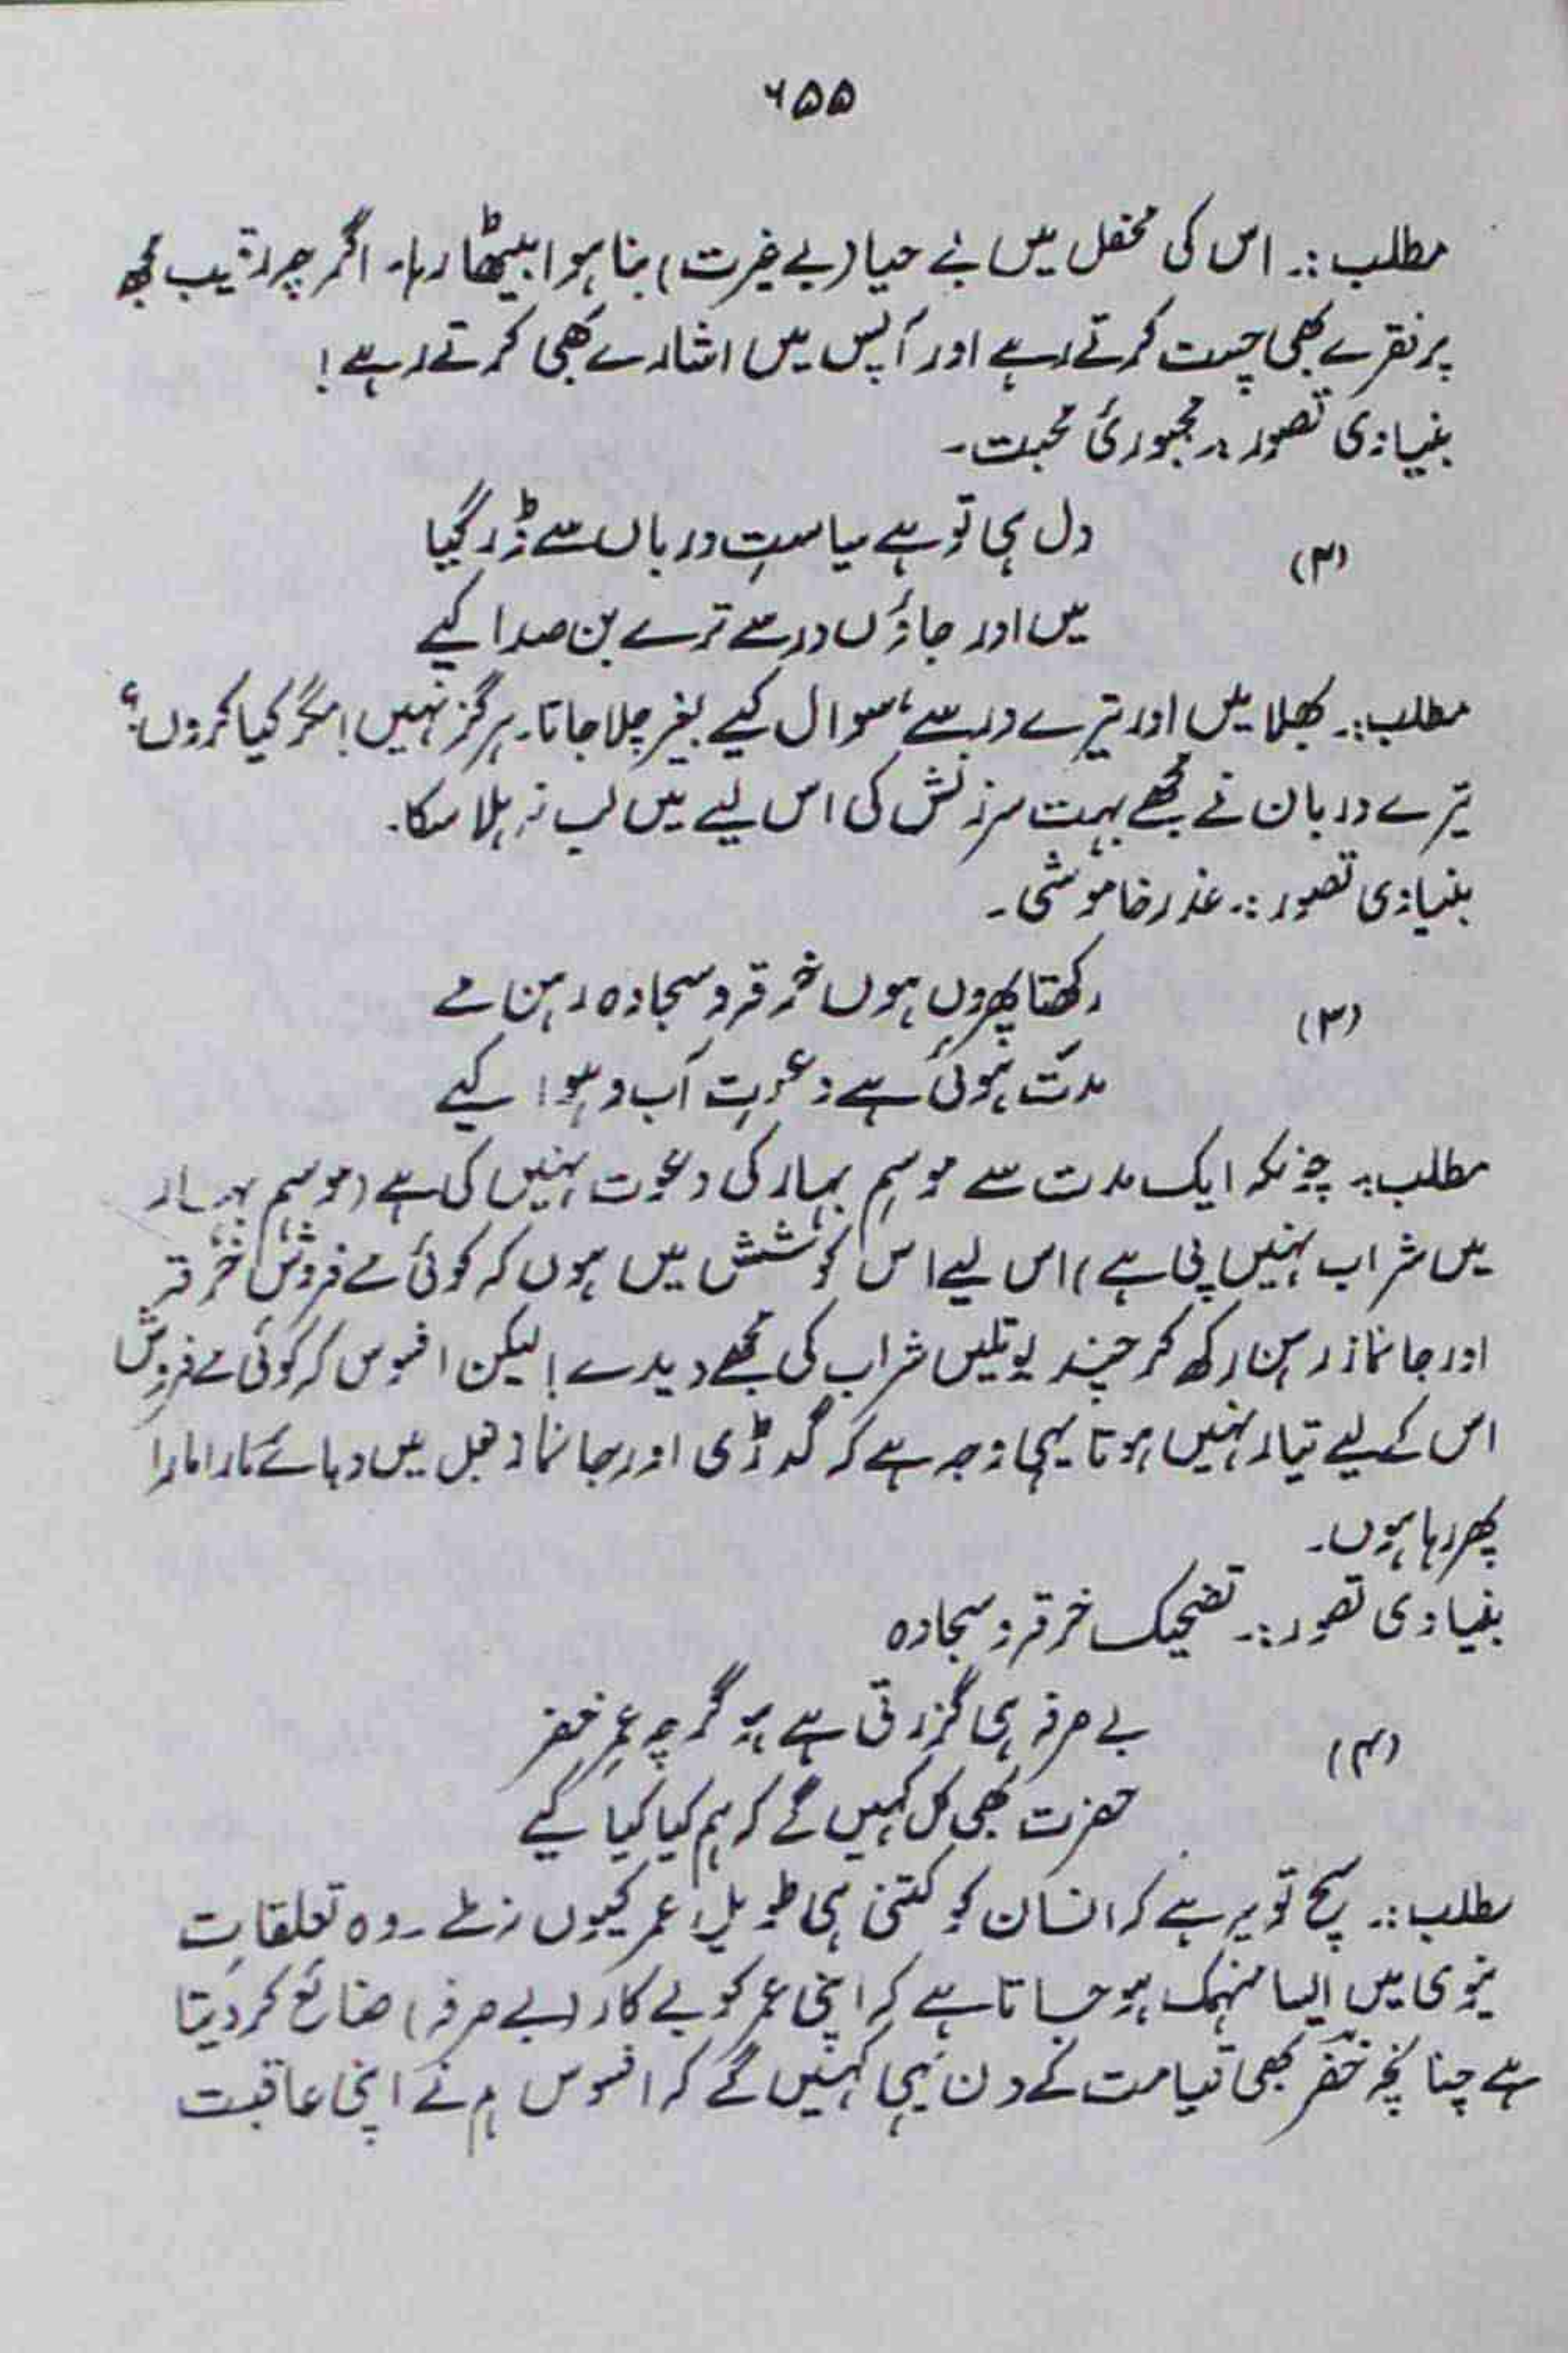 ۶۵۵
مطلب :۔ اس کی محفل میں بے حیا (بے غیرت) بنا ہوا بیٹھا رہا۔ اگرچہ رقیب مجھ
پر فقرے بھی چست کرتے رہے اور آپس میں اشارے بھی کرتے رہے!
بنیادی تصور :۔ مجبوریٔ محبت۔
(۲)
دل ہی تو ہے سیاستِ درباں سے ڈر گیا
میں اور جاؤں در سے ترے بن صدا کیے
مطلب :۔ بھلا میں اور تیرے در سے، سوال کیے بغیر چلا جاتا۔ ہرگز نہیں! مگر کیا کروں؟
تیرے دربان نے مجھے بہت سرزنش کی اس لیے میں لب نہ ہلا سکا۔
بنیادی تصور :۔ عذر خاموشی۔
(۳)
رکھتا پھروں ہوں خرقہ و سجادہ رہن مے
مدت ہوئی ہے دعوتِ آب و ہوا کیے
مطلب :۔ چونکہ ایک مدت سے موسمِ بہار کی دعوت نہیں کی ہے (موسم بہار
میں شراب نہیں پی ہے) اس لیے اس کوشش میں ہوں کہ کوئی مے فروش خرقہ
اور جانماز رہن رکھ کر چند بوتلیں شراب کی مجھے دیدے! لیکن افسوس کہ کوئی مے فروش
اس کے لیے تیار نہیں ہوتا یہی وجہ ہے کہ گدڑی اور جانماز بغل میں دبائے مارا مارا
پھر رہا ہوں۔
بنیادی تصور :۔ تضحیک خرقہ و سجادہ
(۴)
بے صرفہ ہی گزرتی ہے ہو گرچہ عمرِ خضر
حضرت بھی کل کہیں گے کہ ہم کیا کیا کیے
مطلب :۔ سچ تو یہ ہے کہ انسان کو کتنی ہی طویل عمر کیوں نہ ملے۔ وہ تعلقاتِ
نیوی میں ایسا منہمک ہو جاتا ہے کہ اپنی عمر کو بے کار (بے صرفہ) ضائع کر دیتا
ہے چنانچہ خضر بھی قیامت کے دن یہی کہیں گے کہ افسوس ہم نے اپنی عاقبت